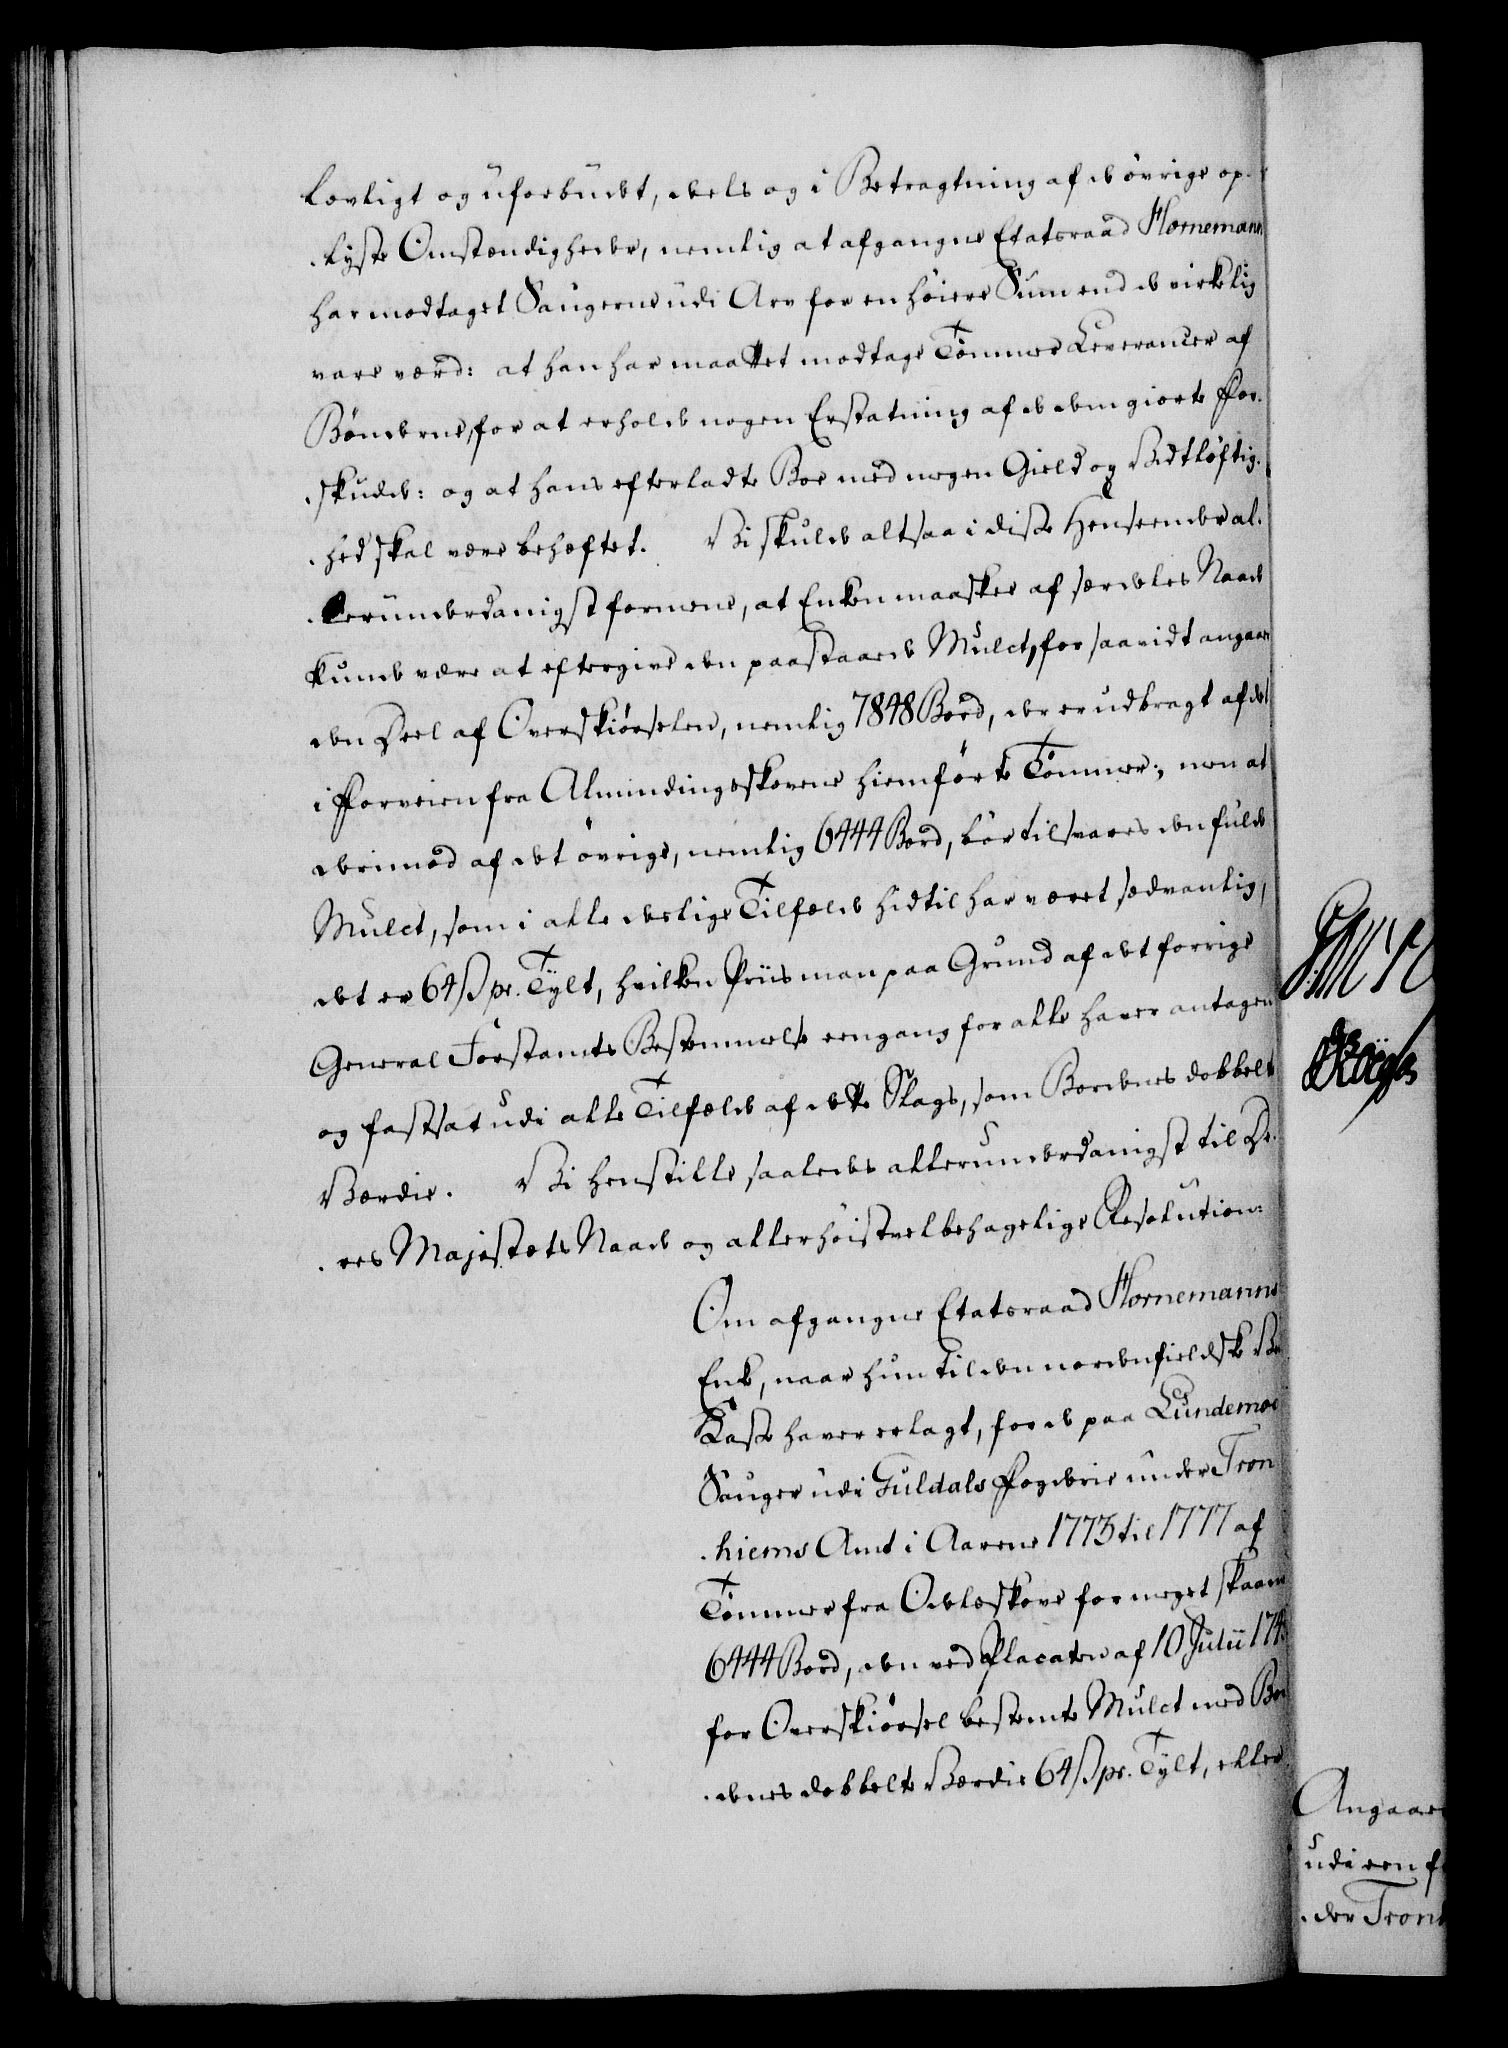 lovligt og uforbudt, deels og i Betragtning af de øvrige op-
lyste Omstændigheder, nemlig at afgangne Etatsraad Hornemann
har modtaget Saugerne udi Arv for en høiere Sum end de virkelig
vare værd: at han har maattet modtage Tømmer Leverancer af
Bønderne, for at erholde nogen Erstatning af de dem giorte For-
skudde: og at hans efterladte Boe med megen Gield og Vidtløftig-
hed skal være behæftet. Vi skulde altsaa i disse Henseender al-
lerunderdanigst formene, at Enken maaskee af særdeles Naade
kunde være at eftergive den paastaaede Mulct, for saavidt angaaer
den Deel af Overskiørselen, nemlig 7848 Bord, der er udbragt af det
i Forveien fra Almindingsskovene hiemførte Tømmer; men at
derimod af det øvrige, nemlig 6444 Bord, bør tilsvares den fulde
Mulct, som i alle deslige Tilfælde hidtil har været sædvanlig,
det er 64 ß pr. Tylt, hvilken Priis man paa Grund af det forrige
General Forstamts Bestemmelse eengang for alle haver antagen
og fastsat udi alle Tilfælde af dette Slags, som Bordenes dobbelte
Værdie. Vi henstille saaledes allerunderdanigst til De-
res Majestæts Naade og allerhøistvelbehagelige Resolution:
Om afgangne Etatsraad Hornemanns
Enke, naar hun til den nordenfieldske
Kasse haver erlagt, for de paa Lundemoe
Sauger udi Guldals Fogderie under Tron
hiems Amt i Aarene 1773 til 1777 af
Tømmer fra Odelsskove for meget skaarne
6444 Bord, den ved Placaten af 10 Julii
for Overskiørsel bestemte Mulct med Bor
denes dobbelte Værdie 64 ß pr. Tylt, eller
Angaae
udi een
der Tron